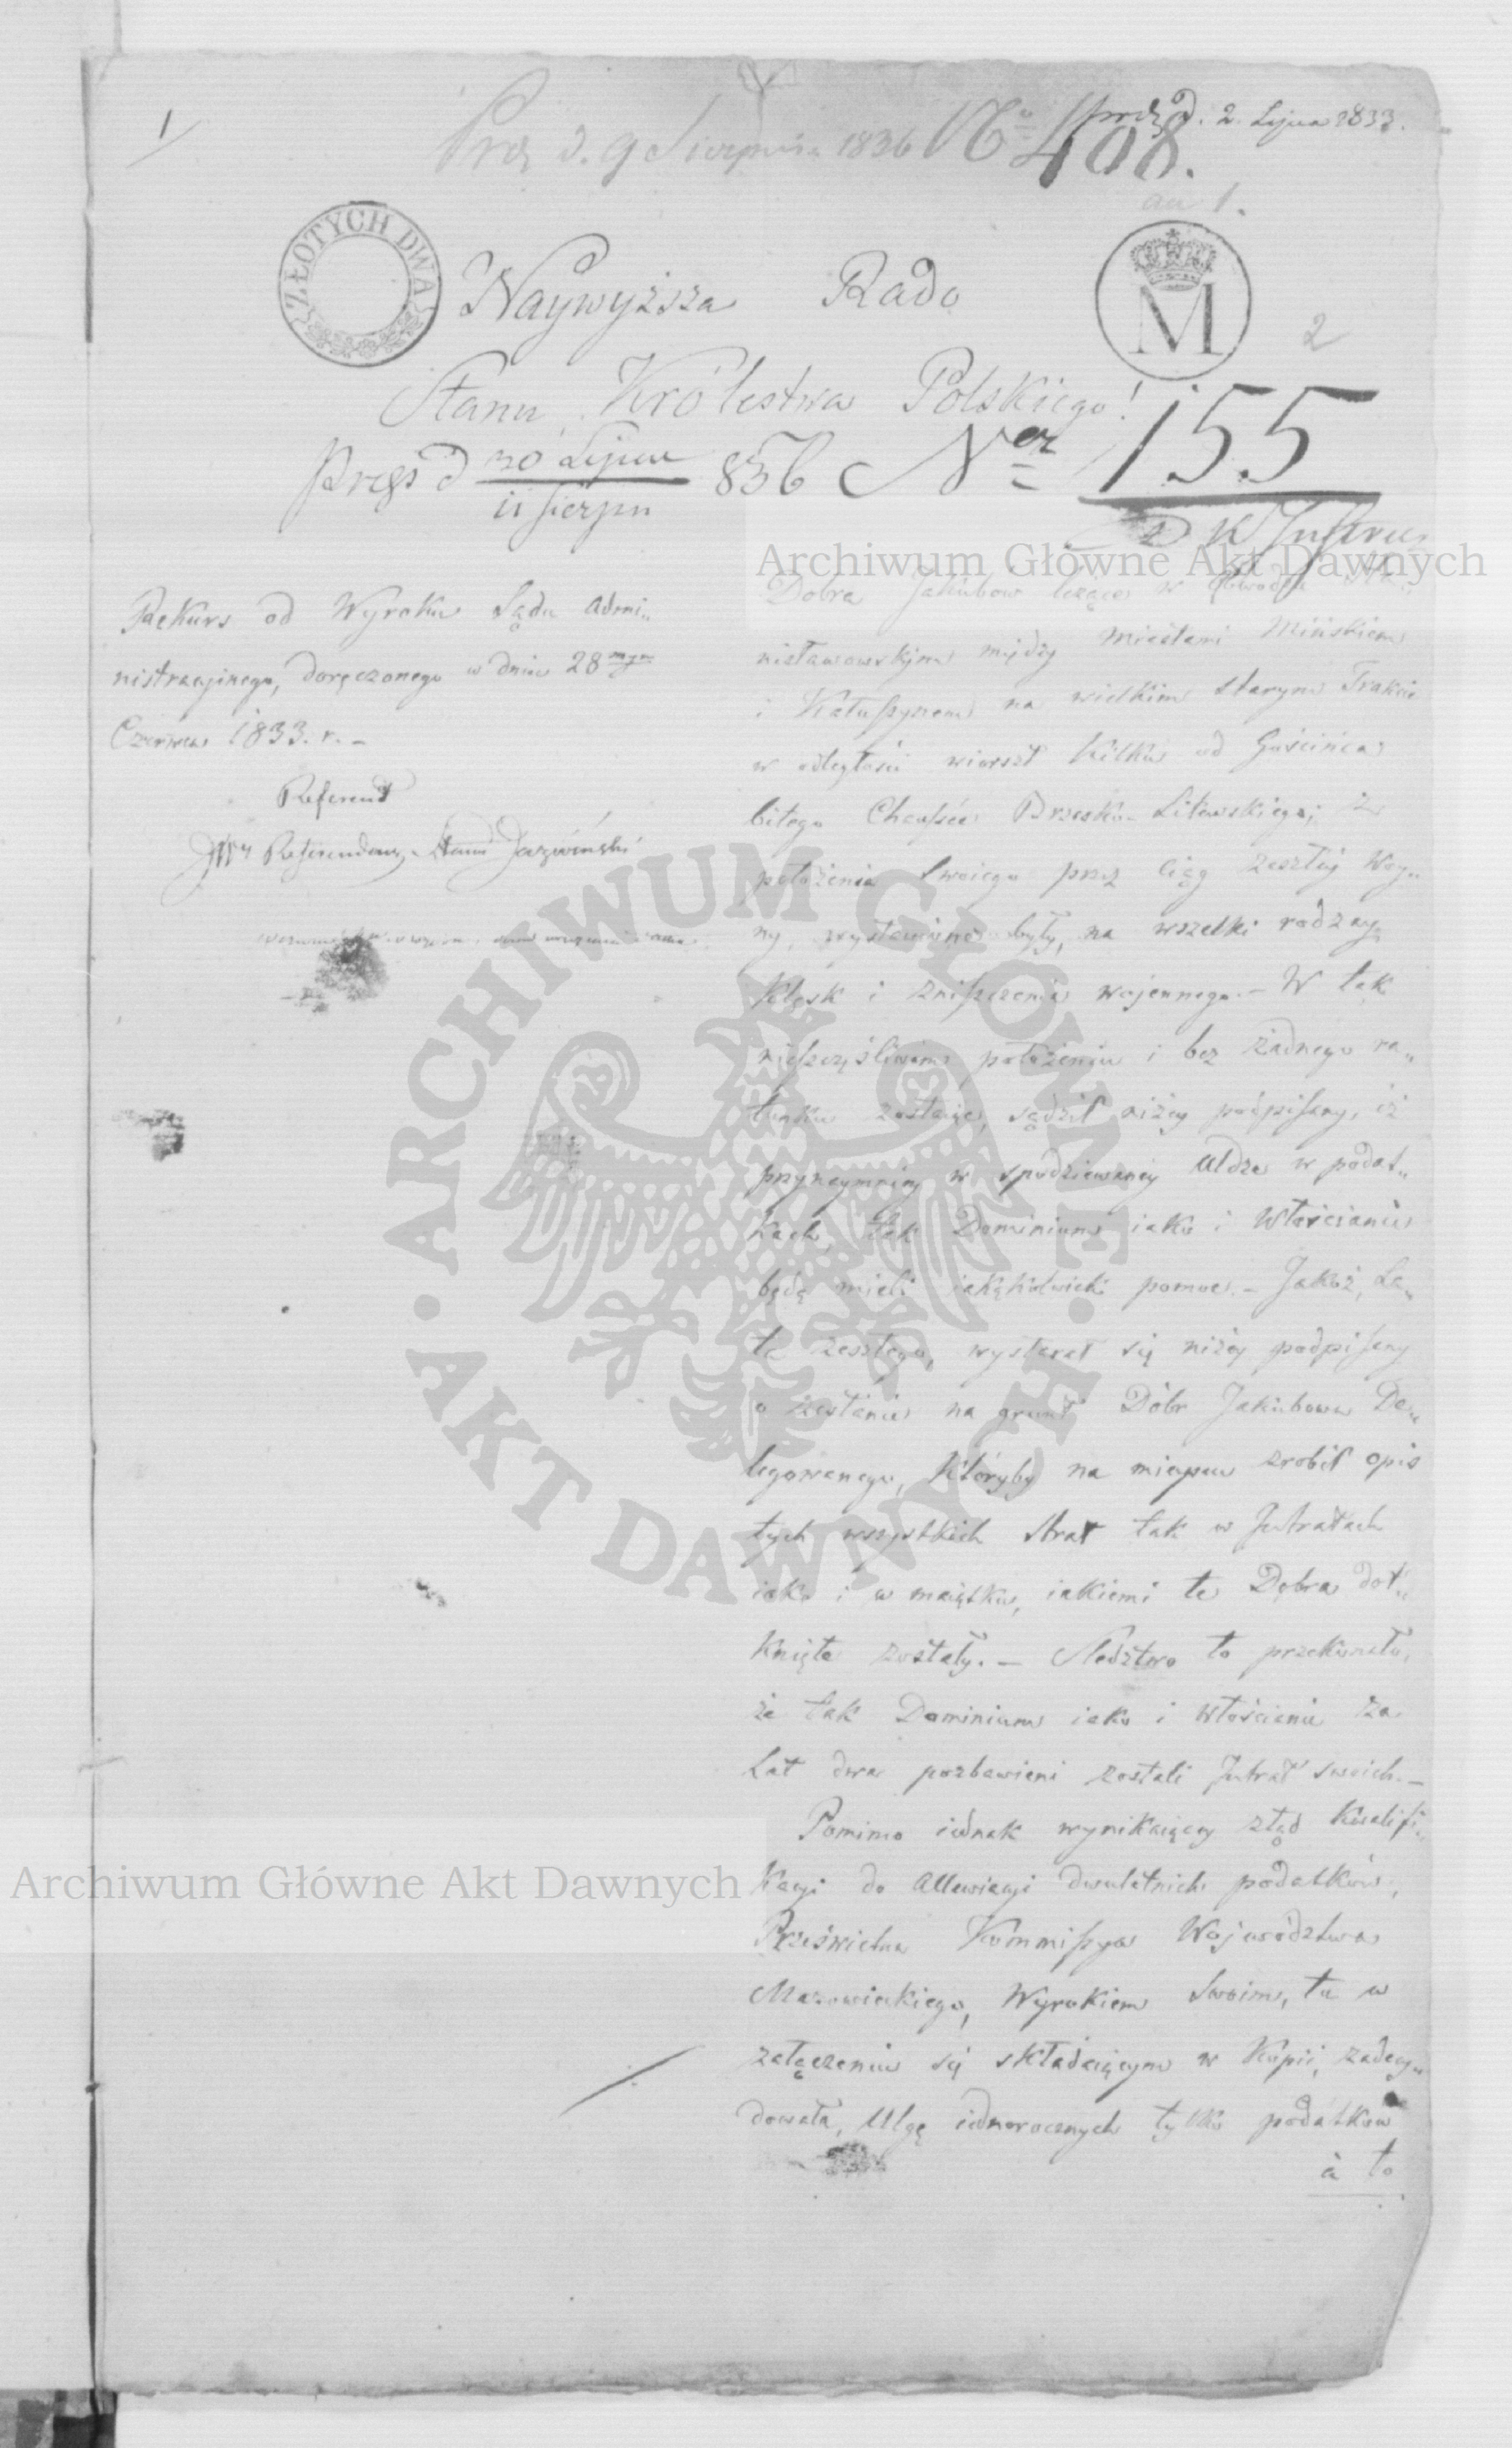 1
prez d. 2. Lipca 1833.
Prez d. 9 Sierpnia 1836 No 408.
ad 1.
ZŁOTYCH DWA
M
2
Naywyższa Rado
Stanu Królestwa Polskiego!
Prezs d 30 Lipca / 11 Sierpn 836 Ner 155
Archiwum Główne Akt Dawnych
Rekurs od Wyroku Sądu Admi„
nistracyjnego, doręczonego w dniu 28mym
Czerwca 1833. r. –
Referent
JWy Referendarz Stanu
Dobra Jakubów leżące w Obwodzie Sta„
nisławowskym między Miastami Mińskiem
i Kałuszynem na wielkim starym Trakcie
w odległości wiorszt kilku od Gościńca
bitego Chaussée Brzesko-Litewskiego; z
położenia Swoiego przez ciąg zeszłej Woy„
ny wystawione były, na wszelki rodzay
klęsk i zniszczenia wojennego. – W tak
nieszczęśliwem położeniu i bez żadnego ra„
tunku zostaiąc, sądził niżey podpisany, iż
przynaymniey w spodziewaney Uldze w podat„
kach, tak Dominium iako i Włościanie
będą mieli iakąkolwiek pomoc. – Jakoż, La„
ta zeszłego, wystarał się niżey podpisany
o zesłanie na grunt Dóbr Jakubowa De„
legowanego, któryby na mieyscu zrobił opis
tych wszystkich strat tak w Jntratach
iako i w maiątku, iakiemi te Dobra dot„
knięte zostały. – Sledztwo to przekonało,
że tak Dominium iako i Włościanie za
Lat dwa pozbawieni zostali Jntrat swoich. –
Pomimo iednak wynikaiącey ztąd kwalifi„
kacyi do Allewiacyi dwuletnich podatków,
Prześwietna Kommissya Województwa
Mazowieckiego, Wyrokiem Swoim, tu w
załączeniu się składaiącym w Kopii, zadecy„
dowała, Ulgę iednorocznych tylko podatków
à to
Archiwum Główne Akt Dawnych
ARCHIWUM GŁÓWNE · AKT DAWNYCH ·